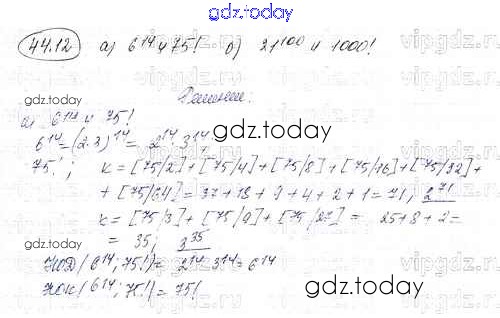 gdz.today
44.12 а) 6^14 и 75! б) 21^100 и 1000!
Решение:
gdz.today
а) 6^14 и 75!
6^14 = (2·3)^14 = 2^14·3^14
gdz.today
75!; k = [75/2] + [75/4] + [75/8] + [75/16] + [75/32] +
+ [75/64] = 37 + 18 + 9 + 4 + 2 + 1 = 71, 2^71
k = [75/3] + [75/9] + [75/27] = 25 + 8 + 2 =
= 35; 3^35
gdz.today
НОД(6^14; 75!) = 2^14·3^14 = 6^14
НОК(6^14; 75!) = 75!
gdz.today